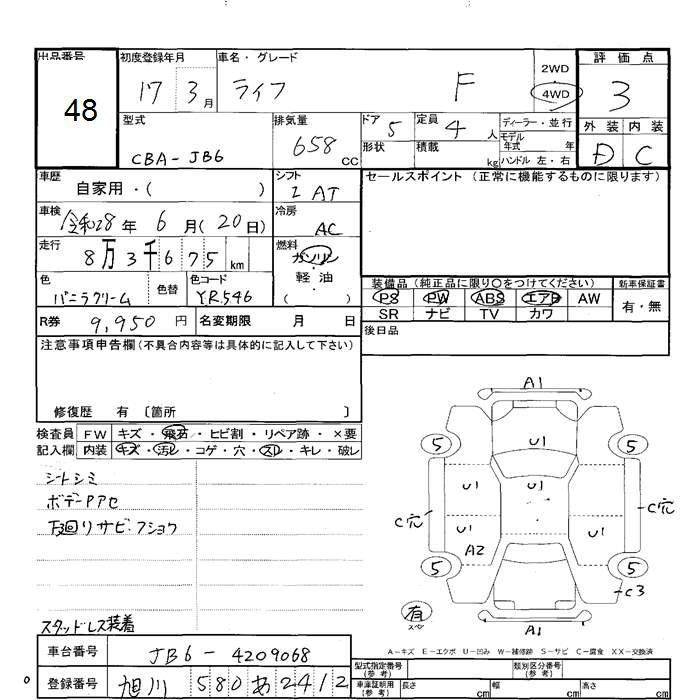 出品番号
48
初度登録年月
17 3月
車名・グレード
ライフ F
2WD
4WD
評価点
3
型式
CBA-JB6
排気量
658 CC
ドア 5
形状
定員 4 人
積載 kg
ディーラー・並行
モデル年式 年
ハンドル 左・右
外装 内装
D C
車歴
自家用・( )
シフト
I AT
セールスポイント (正常に機能するものに限ります)
車検
令和28年 6月(20日)
冷房
AC
走行
8万3千675km
燃料
ガソリン
軽油
( )
色
バニラクリーム
色替
色コード
YR546
装備品(純正品に限り〇をつけてください)
新車保証書
PS PW ABS エアB AW
有・無
SR ナビ TV カワ
R券 9,950円
名変期限 月 日
後日品
注意事項申告欄(不具合内容等は具体的に記入して下さい)
修復歴 有 〔箇所 〕
検査員 FW キズ・飛石・ヒビ割・リペア跡・×要
記入欄 内装 キズ・汚レ・コゲ・穴・スレ・キレ・破レ
シートシミ
ボデーPアセ
下廻りサビ・フショク
スタッドレス装着
A1
5 5
U1
U1 U1
C穴 C穴
U1 U1
A2
5 5
C3
有
スペア
A1
A-キズ E-エクボ U-凹み W-補修跡 S-サビ C-腐食 XX-交換済
車台番号 JB6-4209068
登録番号 旭川 580 あ 2412
型式指定番号
(参考)
類別区分番号
(参考)
車庫証明用
(参考)
長さ cm
幅 cm
高さ cm